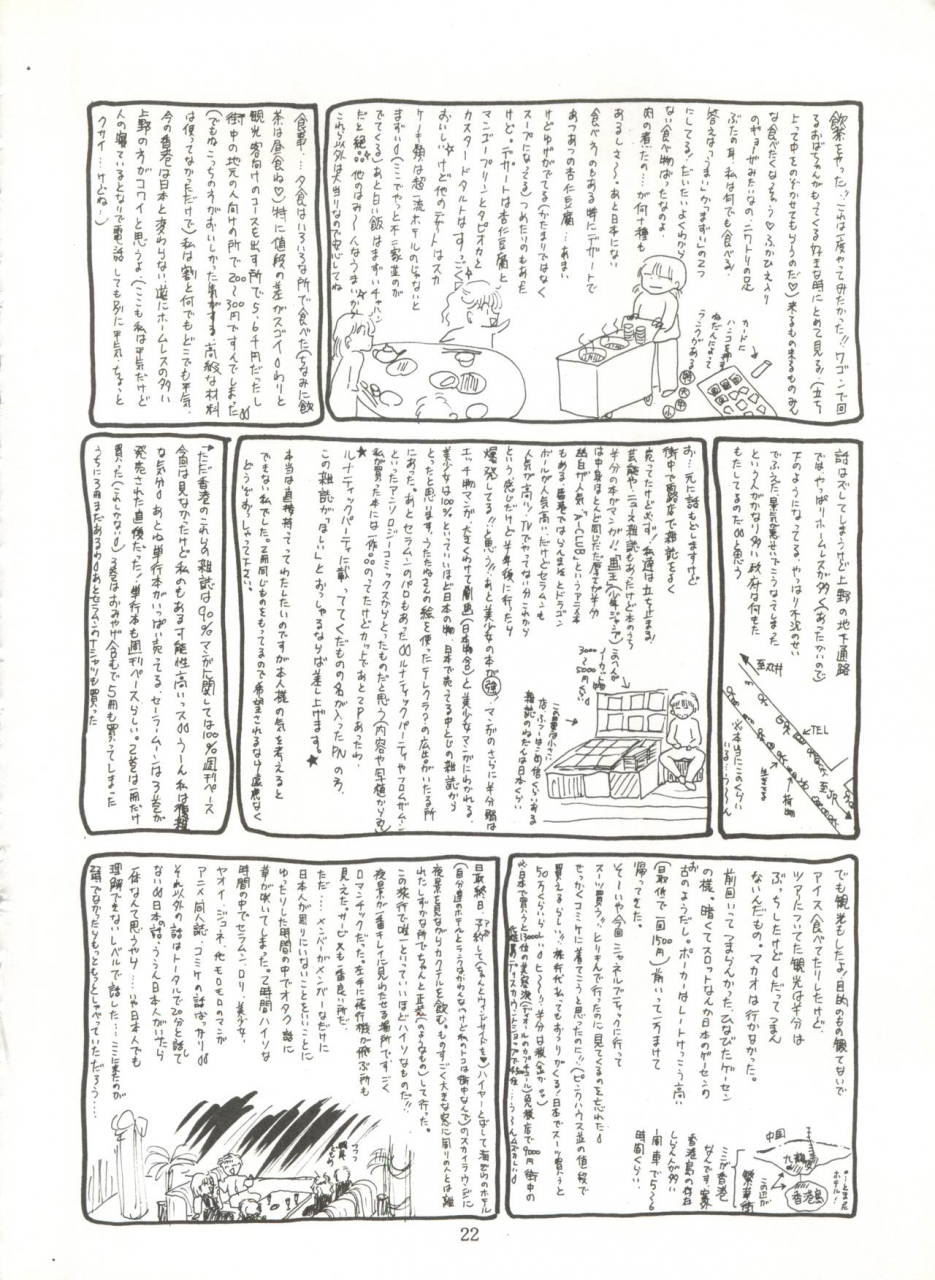 飲茶をやった!!これは一度やってみたかった!!ワゴンで回
るおばちゃんがもってくる好きな時にとめて見る!(立ち
上って中をのぞかせてもらうのだ♡)来るもの来るものみん
な食べたくなっちゃう♡ふかひれ入り
のギョーザみたいなの、ニワトリの足
ぶたの耳、私は何でも食べるよ
答えは「うまい」か「まずい」の2つ
にしてる!だいたいよくわから
ない食べ物ばっかなのよ。
肉の煮たの…が何十種も
あるしさ〜。あと日本にない
食べもののある時にデザートで
あつあつの杏仁豆腐…あまい
けどゆげがでてる(かたまりではなく
スープになってる)つめたいのもあった
けど。デザートは杏仁豆腐と
マンゴープリンとタピオカと
カスタードタルトはすっごく
おいしいけど他のデザートはスカ
ケーキ類は超一流ホテルのじゃないと
まずい(ここでやっと不二家並のが
でてくる)あと白い飯はまずいチャーハン
だと絶。。他のはみ〜んなうまいから
これら以外は大当りなので安心してね
カードに
ハンコを押す
ねだんによって
ランクがある
特
大
中
小
食事…夕食はいろいろな所で食べた(ちなみに飲
茶は昼食ね♡)特に値段の差がスゴイわりと
観光客向けのコースを出す所で5.6千円だったし
街中の地元の人向けの所で200〜300円ですんでしまった
(でもねこっちの方がおいしかった気がする、高級な材料
は使ってなかったけど)私は割と何でもどこでも平気。
今の香港は日本と変わらない道にホームレスの多い
上野の方がコワイと思うよ。(ここも私は平気だけど
人の寝ているとなりで電話しても別に平気、ちょっと
クサイ…けどね…)
話はズレてしまうけど上野の地下通路
ではやっぱりホームレスが多く(あったかいので)
下のようになってるやっぱり不況のせい
でふえた、景気悪いせいでこうなってしまった
という人がかなり多い政府は何をた
もたしてるのだと思う
至丸井
TEL
至JR
生きてる
荷物
※本当にこのくらい
いる…う〜ん
お…元に話もどしますけど
街中で露店で雑誌をよく
売ってたけど必ず!私達は立ち止まる!
芸能やニュース雑誌もあったけど本のうち
半分の本がマンガ!!「画王」(少年ジャンプ)あへんが
は中身ほとんど同じだった厚さが半分
面白が人気「A-CLUB」というアニメ本
もある。香港ではらんま½とドラゴン
ボールが人気高いだけどセラムンも
人気が高い!TVでやってない分これから
という感じだけど半年後に行ったら
爆発してる!!と思う!!あと美少女の本が強
エッチ物マンガが大きくわけて劇画(日本物含)と美少女マンガにわかれる
美少女は100%といっていいほど日本の物、日本で売ってる中とじの雑誌から
とったと思います。うたたねさんの絵を使ったテレクラ?の広告がいたる所
にあった。あとセラムンのパロもあったルナティックパーティやフロムガムーン
といったアンソロジーコミックスからとったものだと思う
私が買った本には一作。。のってたけどカットであと2Pあったわ。
★ルナティックパーティに載っててくだもの名が入ったPNの方、
この雑誌が「ほしい」とおっしゃるならば差し上げます。★
本当は直接持ってってわたしたいのですが本人様の気を考えると
できない私でした。2冊同じものをもってるので希望されるなら遠慮なく
どうぞおっしゃって下さい。
ノーカット物
3000〜5000円ぐらい
→ただ香港のこれらの雑誌は90%マンガに関しては100%週刊ペース
な気分あと単行本がいっぱい売ってる。セーラームーンは3巻が
発売された直後だった!単行本も週刊ペースらしい。2巻は一冊だけ
買った(これしかない)3巻はおみやげ含むで5冊も買ってしまった
うちに3冊まだあるわあとセラムンのTシャツも買った
でも観光もしたよ!目的のもの観てないで
アイス食べてたりしたけど。
ツアーについてた観光は半分は
ぶっちしたけどだってつまん
ないんだもの。マカオは行かなかった。
前回いってつまらんかった。ひなびたゲーセン
の様、暗くてスロットなんか日本のゲーセンの
お古のようだし。ポーカーはレートけっこう高い
(最低で一回1500円)前いって一万まけて
帰ってきた。
そ〜いや今回シャネルブティックに行って
スーツ買う!!とりきんで行ったのに見てくるのを忘れた
せっかくコミケに着てこうと思ったのに!!(ピンクハウス並の値段で
買えるらしい!!旅行代払ってもおつりがくる!日本でスーツ買うと
50万くらいらしいヒ〜!!半分は税金か。)
中国
九龍
香港島
この辺が
繁華街
ホテル!
ミニが香港
なんです。実際
香港島の方が
しぶんが多い
一周車で5〜6
時間くらい
最終日(予約して(ちゃんとウィンドサイドを♡)ハイヤーとばして海ぞいのホテル
のスカイラウンジに
夜景を見ながらカクテルを飲む。ものすごく大きな窓に周りの人とは離
れたしずかな所で(ちゃんと正装のようなもの)して行った。
この旅行で唯一といっていいほどハイソなものだ!!
夜景が一番キレイに見わたせる場所ですごく
ロマンチックだった。左手に飛行機が飛ぶ所も
見えた。サービスも一番良い所だ。
ただ……メンバーがメンバーなだけに
日本人が周りにいないことをいいことに
ゆったりした時間の中でオタク話に
華が咲いてしまった。2時間ハイソな
時間の中でセラムン、ロリ、美少女、
ヤオイ、ジュネ、他モロモロのマンガ
アニメ、同人誌、コミケの話ばっかり
それ以外の話はトータルで20分と話して
ない日本の話。ううん日本人がいたら
一体なんて思うやら……いや日本人でも
理解できないレベルで話した…ここに来たのが
22